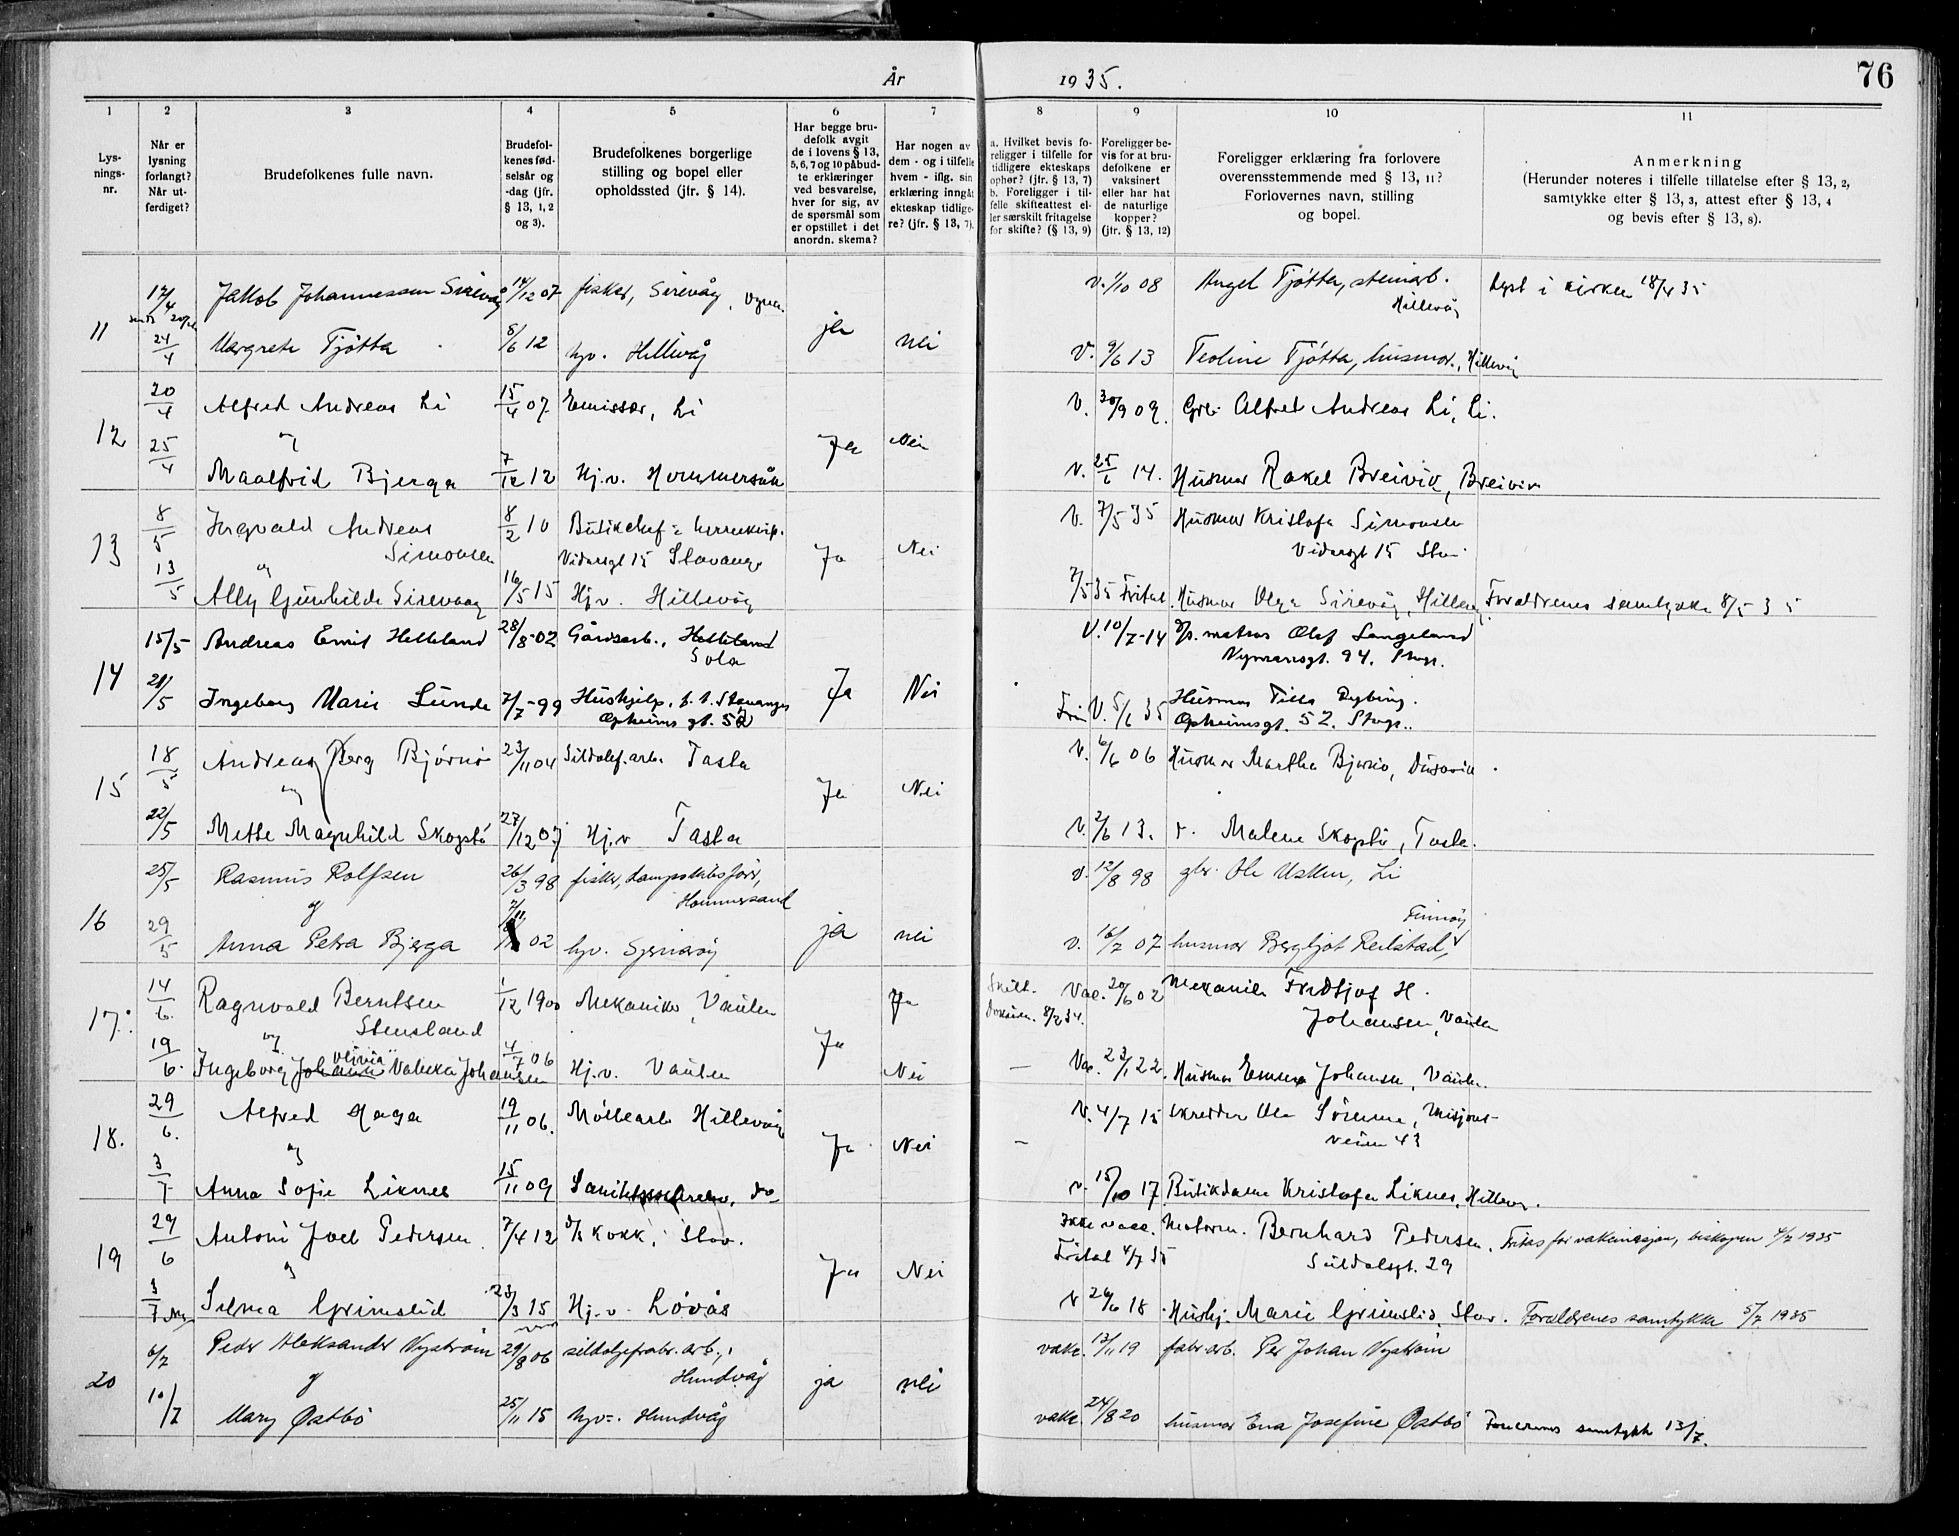 År 1935.
76
1
2
3
4
5
6
7
8
9
10
11
Lys-
nings-
nr.
Når er
lysning
forlangt?
Når ut-
ferdiget?
Brudefolkenes fulle navn.
Brudefol-
kenes fød-
selsår og
-dag (jfr.
§ 13, 1, 2
og 3).
Brudefolkenes borgerlige
stilling og bopel eller
opholdssted (jfr. § 14).
Har begge bru-
defolk avgit
de i lovens § 13,
5, 6, 7 og 10 påbud-
te erklæringer
ved besvarelse,
hver for sig, av
de spørsmål som
er opstillet i det
anordn. skema?
Har nogen av
dem - og i tilfelle
hvem - iflg. sin
erklæring inngåt
ekteskap tidlige-
re? (jfr. § 13, 7).
a. Hvilket bevis fo-
religger i tilfelle for
tidligere ekteskaps
ophør? (jfr. § 13, 7)
b. Foreligger i til-
felle skifteattest el-
ler særskilt fritagelse
for skifte? (§ 13, 9)
Foreligger be-
vis for at bru-
defolkene er
vaksinert
eller har hat
de naturlige
kopper?
(jfr. § 13, 12)
Foreligger erklæring fra forlovere
overensstemmende med § 13, 11?
Forlovernes navn, stilling
og bopel.
Anmerkning
(Herunder noteres i tilfelle tillatelse efter § 13, 2,
samtykke efter § 13, 3, attest efter § 13, 4
og bevis efter § 13, 8).
11 17/4 Jakob Johannessen Sirevåg 14/12 07 fisker, Sirevåg, Ogna. V. 1/10 08 Angel Tjötta, steinarb. Hillevåg Lyst i kirken 18/4 35
24/4 Margrete Tjötta 5/6 12 hjv. Hillevåg ja nei V. 9/6 13 Teoline Tjötta, husmor, Hillevåg
12 20/4 Alfred Andreas Li 15/4 07 Emissær, Li V. 30/9 09. Grb. Alfred Andreas Li, Li.
og
25/4 Maalfrid Bjerga 7/12 12 Hj.v. Hommersåk Ja Nei V. 25/6 14. Husmor Rakel Breivik, Breivik
13 8/5 Ingvald Andreas Simonsen 8/2 10 Butikchef Vidarsgt 15 Stavanger Ja Nei V. 7/5 35 Husmor Kristofa Simonsen
Vidarsgt 15 Stav.
og
13/5 Ally Gunhilde Sirevaag 16/5 15 Hj.v. Hillevåg 7/5 35 Fritat. Husmor Olga Sirevåg, Hillevåg. Foreldrenes samtykke 8/5 35
14 15/5 Andreas Emil Helleland 28/8-02 Gårdsarb., Helleland
Sola V. 10/7-14 matros Olof Langeland
Nymansgt. 94. Stvgr.
21/5 Ingeborg Marie Lunde 7/7-99 Hushjelp, Stavanger
Opheims gt. 52 Ja Nei V. 5/6 35 Husmor
Opheimsgt. 52. Stvgr.
15 18/5 Andreas Berg Bjørnø 23/11 04 Sildolef.arb. Tasta V. 6/6 06 Husmor Martha Bjørnø, Dusavik.
og Ja Nei
22/5 Mette Magnhild Skogstö 27/12 07 Hj.v Tasta V. 2/6 13. Malene Skogstö, Tasta.
16 25/5 Rasmus Rolfsen 26/3 98 fisker, Hommersand V. 12/8 98 gbr. Ole Usken, Li
og 7/11 Finnøy
29/5 Anna Petra Bjerga 02 hjv. Sjernarøy ja nei V. 16/7 07 husmor Bergljot Reilstad,
17. 14/6. Ragnvald Berntsen 1/12 1900 Mekaniker, Vaulen Ja Skilt. Vac. 20/6 02 Mekaniker Fridtjof H.
og Stensland Ja 8/2 34. Johansen, Vaulen
olivia
19/6. Ingeborg Johanne Valeska Johansen 4/7 06 Hj.v. Vaulen Nei — Vac. 23/1 22. Husmor Emma Johansen, Vaulen.
18. 29/6. Alfred Haga 19/11 06. Möllearb Hillevåg V. 4/7 15 Skredder Ole Sömme, Misjons-
og Ja Nei — veien 43
3/7 Anna Sofie Liknes 15/11 09 do V. 15/10 17 Butikdame Kristofa Liknes, Hillevåg.
19 29/6 Antoni Joel Pedersen 7/4 12 d/s Kokk, Stav. Ikke vacc. Bernhard Pedersen. Fritas for vaksinasjon, biskopen 4/7 1935
og Ja Nei Fritat 4/7 35 Suldalsgt. 29
3/7 Selma Grimslid 23/3 15 Hj.v. Lövås V 26/6 18 Hushj. Marie Grimslid, Stav. Foreldrenes samtykke 5/7 1935
20 6/7 Peder Aleksander Nystrøm 29/8 06 sildoljefabr. arb., Hundvåg vakc. 13/11 19 fabr.arb. Per Johan Nystrøm
og ja nei
10/7 Mary Østbö 25/11 15 hjv. Hundvåg vakc. 24/8 20 husmor Ena Josefine Østbö Foreldrenes samtykk 13/7.